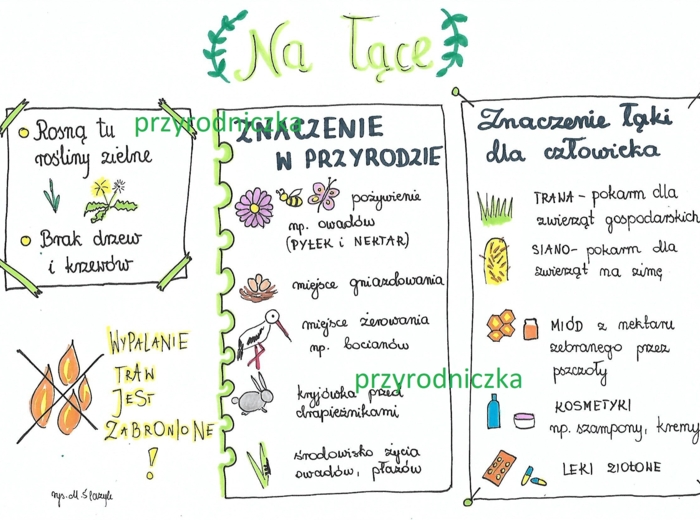 Na łące
przyrodniczka
Rosną tu
rośliny zielne
Brak drzew
i krzewów
WYPALANIE
TRAW
JEST
ZABRONIONE
!
ZNACZENIE
W PRZYRODZIE
pożywienie
np. owadów
(PYŁEK i NEKTAR)
miejsce gniazdowania
miejsce żerowania
np. bocianów
przyrodniczka
kryjówka przed
drapieżnikami
środowisko życia
owadów, płazów
Znaczenie łąki
dla człowieka
TRAWA - pokarm dla
zwierząt gospodarskich
SIANO - pokarm dla
zwierząt na zimę
MIÓD z nektaru
zebranego przez
pszczoły
KOSMETYKI
np. szampony, kremy
LEKI ZIOŁOWE
rys. M